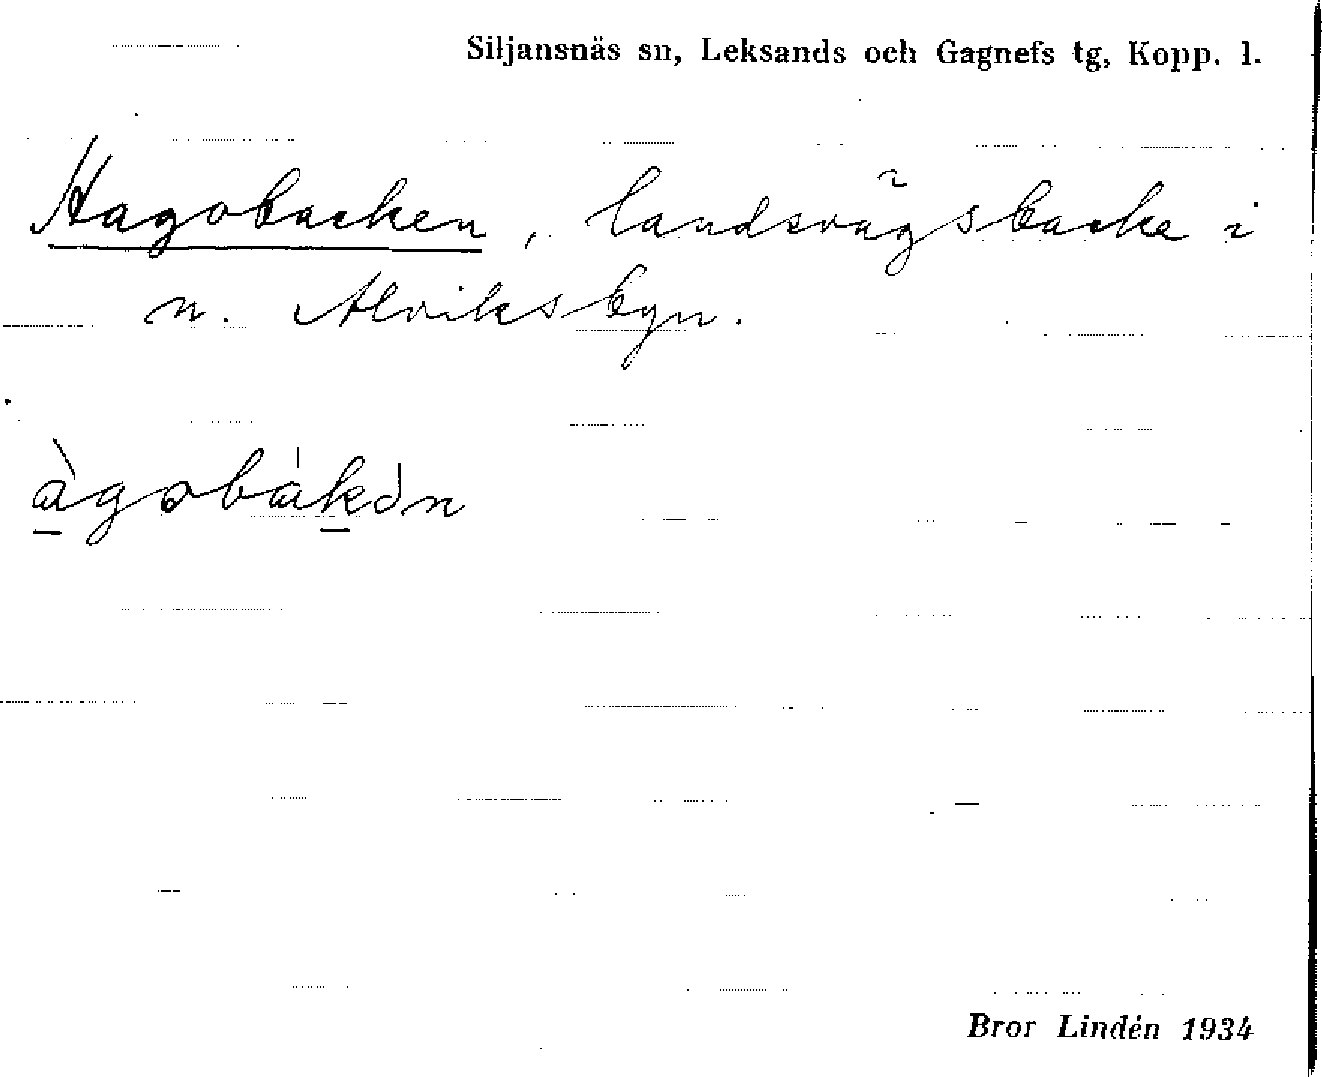 Siljansnäs sn, Leksands och Gagnefs tg, Kopp. l.
Hagobacken, landsvägsbacke i
n. Alviksbyn.
àgobákən
Bror Lindén 1934